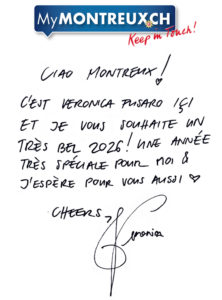 MyMONTREUX.CH
Keep in Touch!
CIAO MONTREUX!
C'EST VERONICA FUSARO IÇI
ET JE VOUS SOUHAITE UN
TRÈS BEL 2026! UNE ANNÉE
TRÈS SPÉCIALE POUR MOI &
J'ESPÈRE POUR VOUS AUSSI ♡
CHEERS,
Veronica